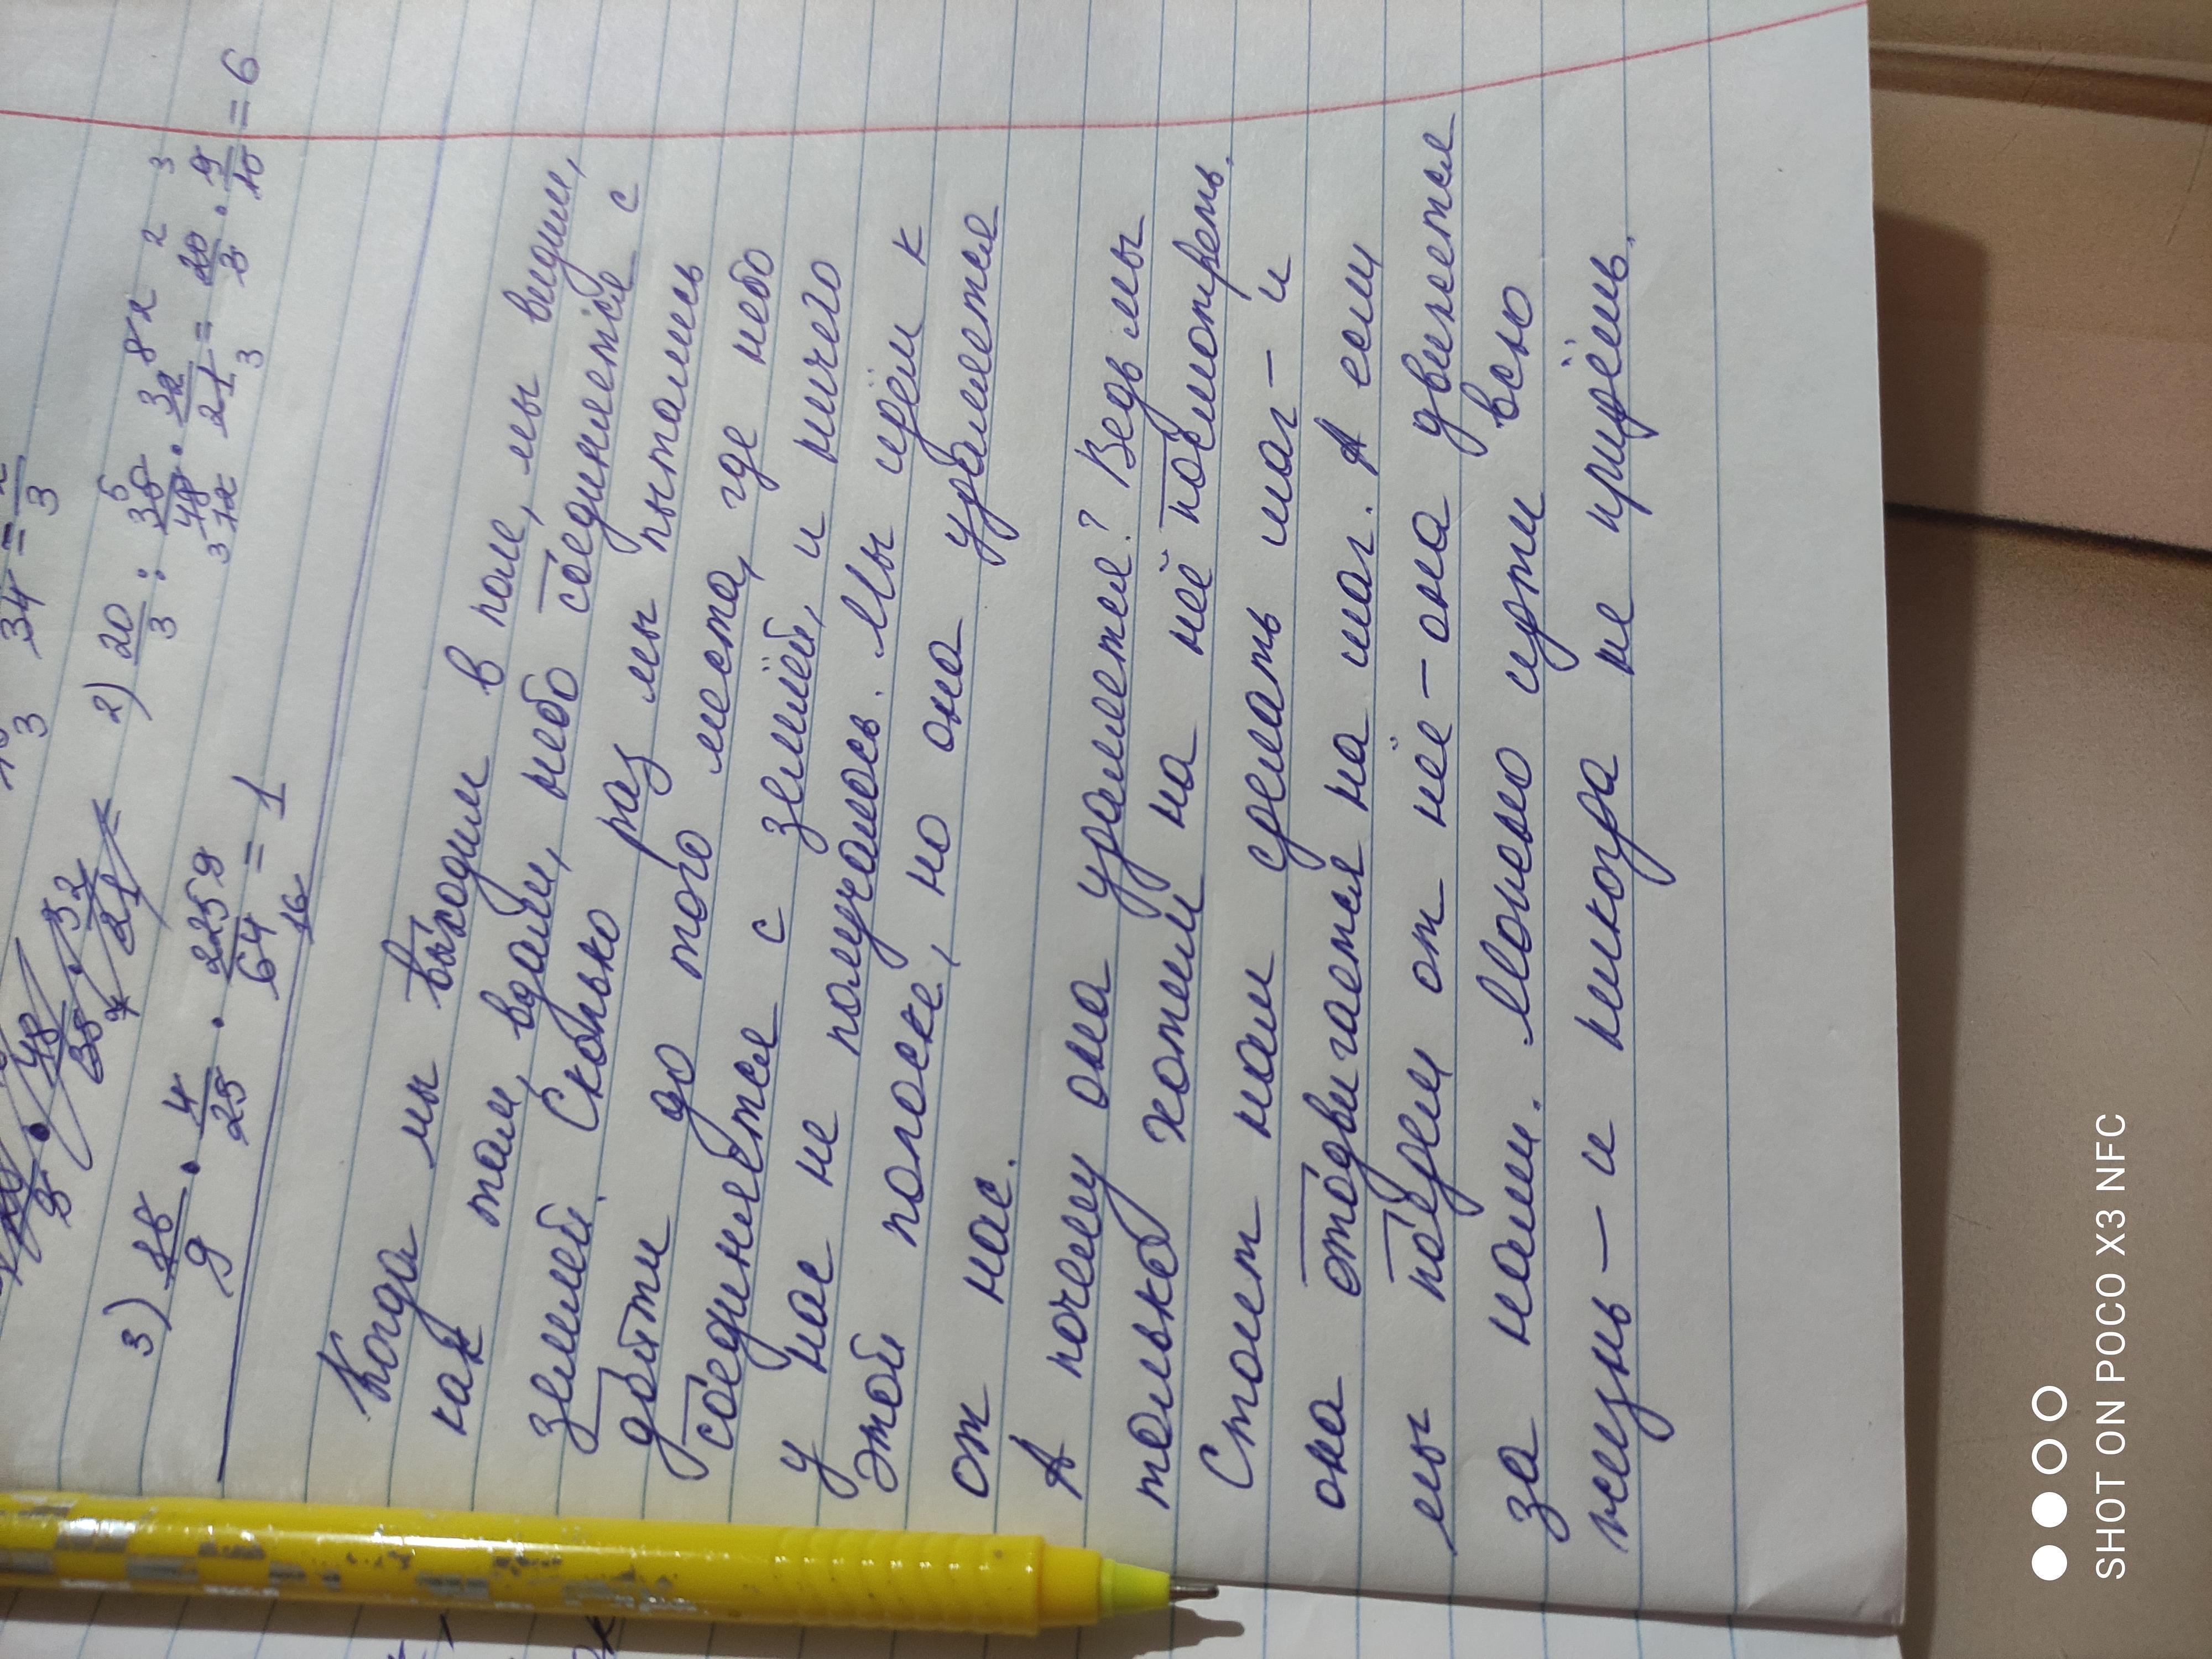 34 = 2/3
3
2) 20/3 : 35/48 · 32/21 = 20/3 · 9/10 = 6
3) 16/9 · 4/25 · 225/64 = 1
Когда мы выходим в поле, мы видим,
как там, вдали, небо соединяется с
землей. Сколько раз мы пытались
дойти до того места, где небо
соединяется с землёй, и ничего
у нас не получалось. Мы идём к
этой полоске, но она удаляется
от нас.
А почему она удаляется? Ведь мы
только хотим на неё посмотреть.
Стоит нам сделать шаг – и
она отодвигается на шаг. А если
мы пойдем от неё – она движется
за нами. Можно идти всю
жизнь – и никогда не придёшь.
SHOT ON POCO X3 NFC